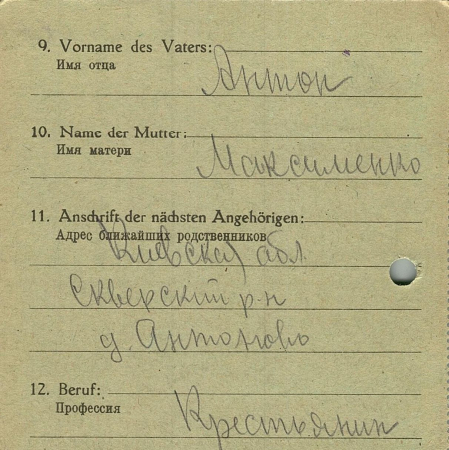 9. Vorname des Vaters:
Имя отца
Антон
10. Name der Mutter:
Имя матери
Максименко
11. Anschrift der nächsten Angehörigen:
Адрес ближайших родственников
Киевская обл
Скверский р-н
д. Антоново
12. Beruf:
Профессия
Крестьянин